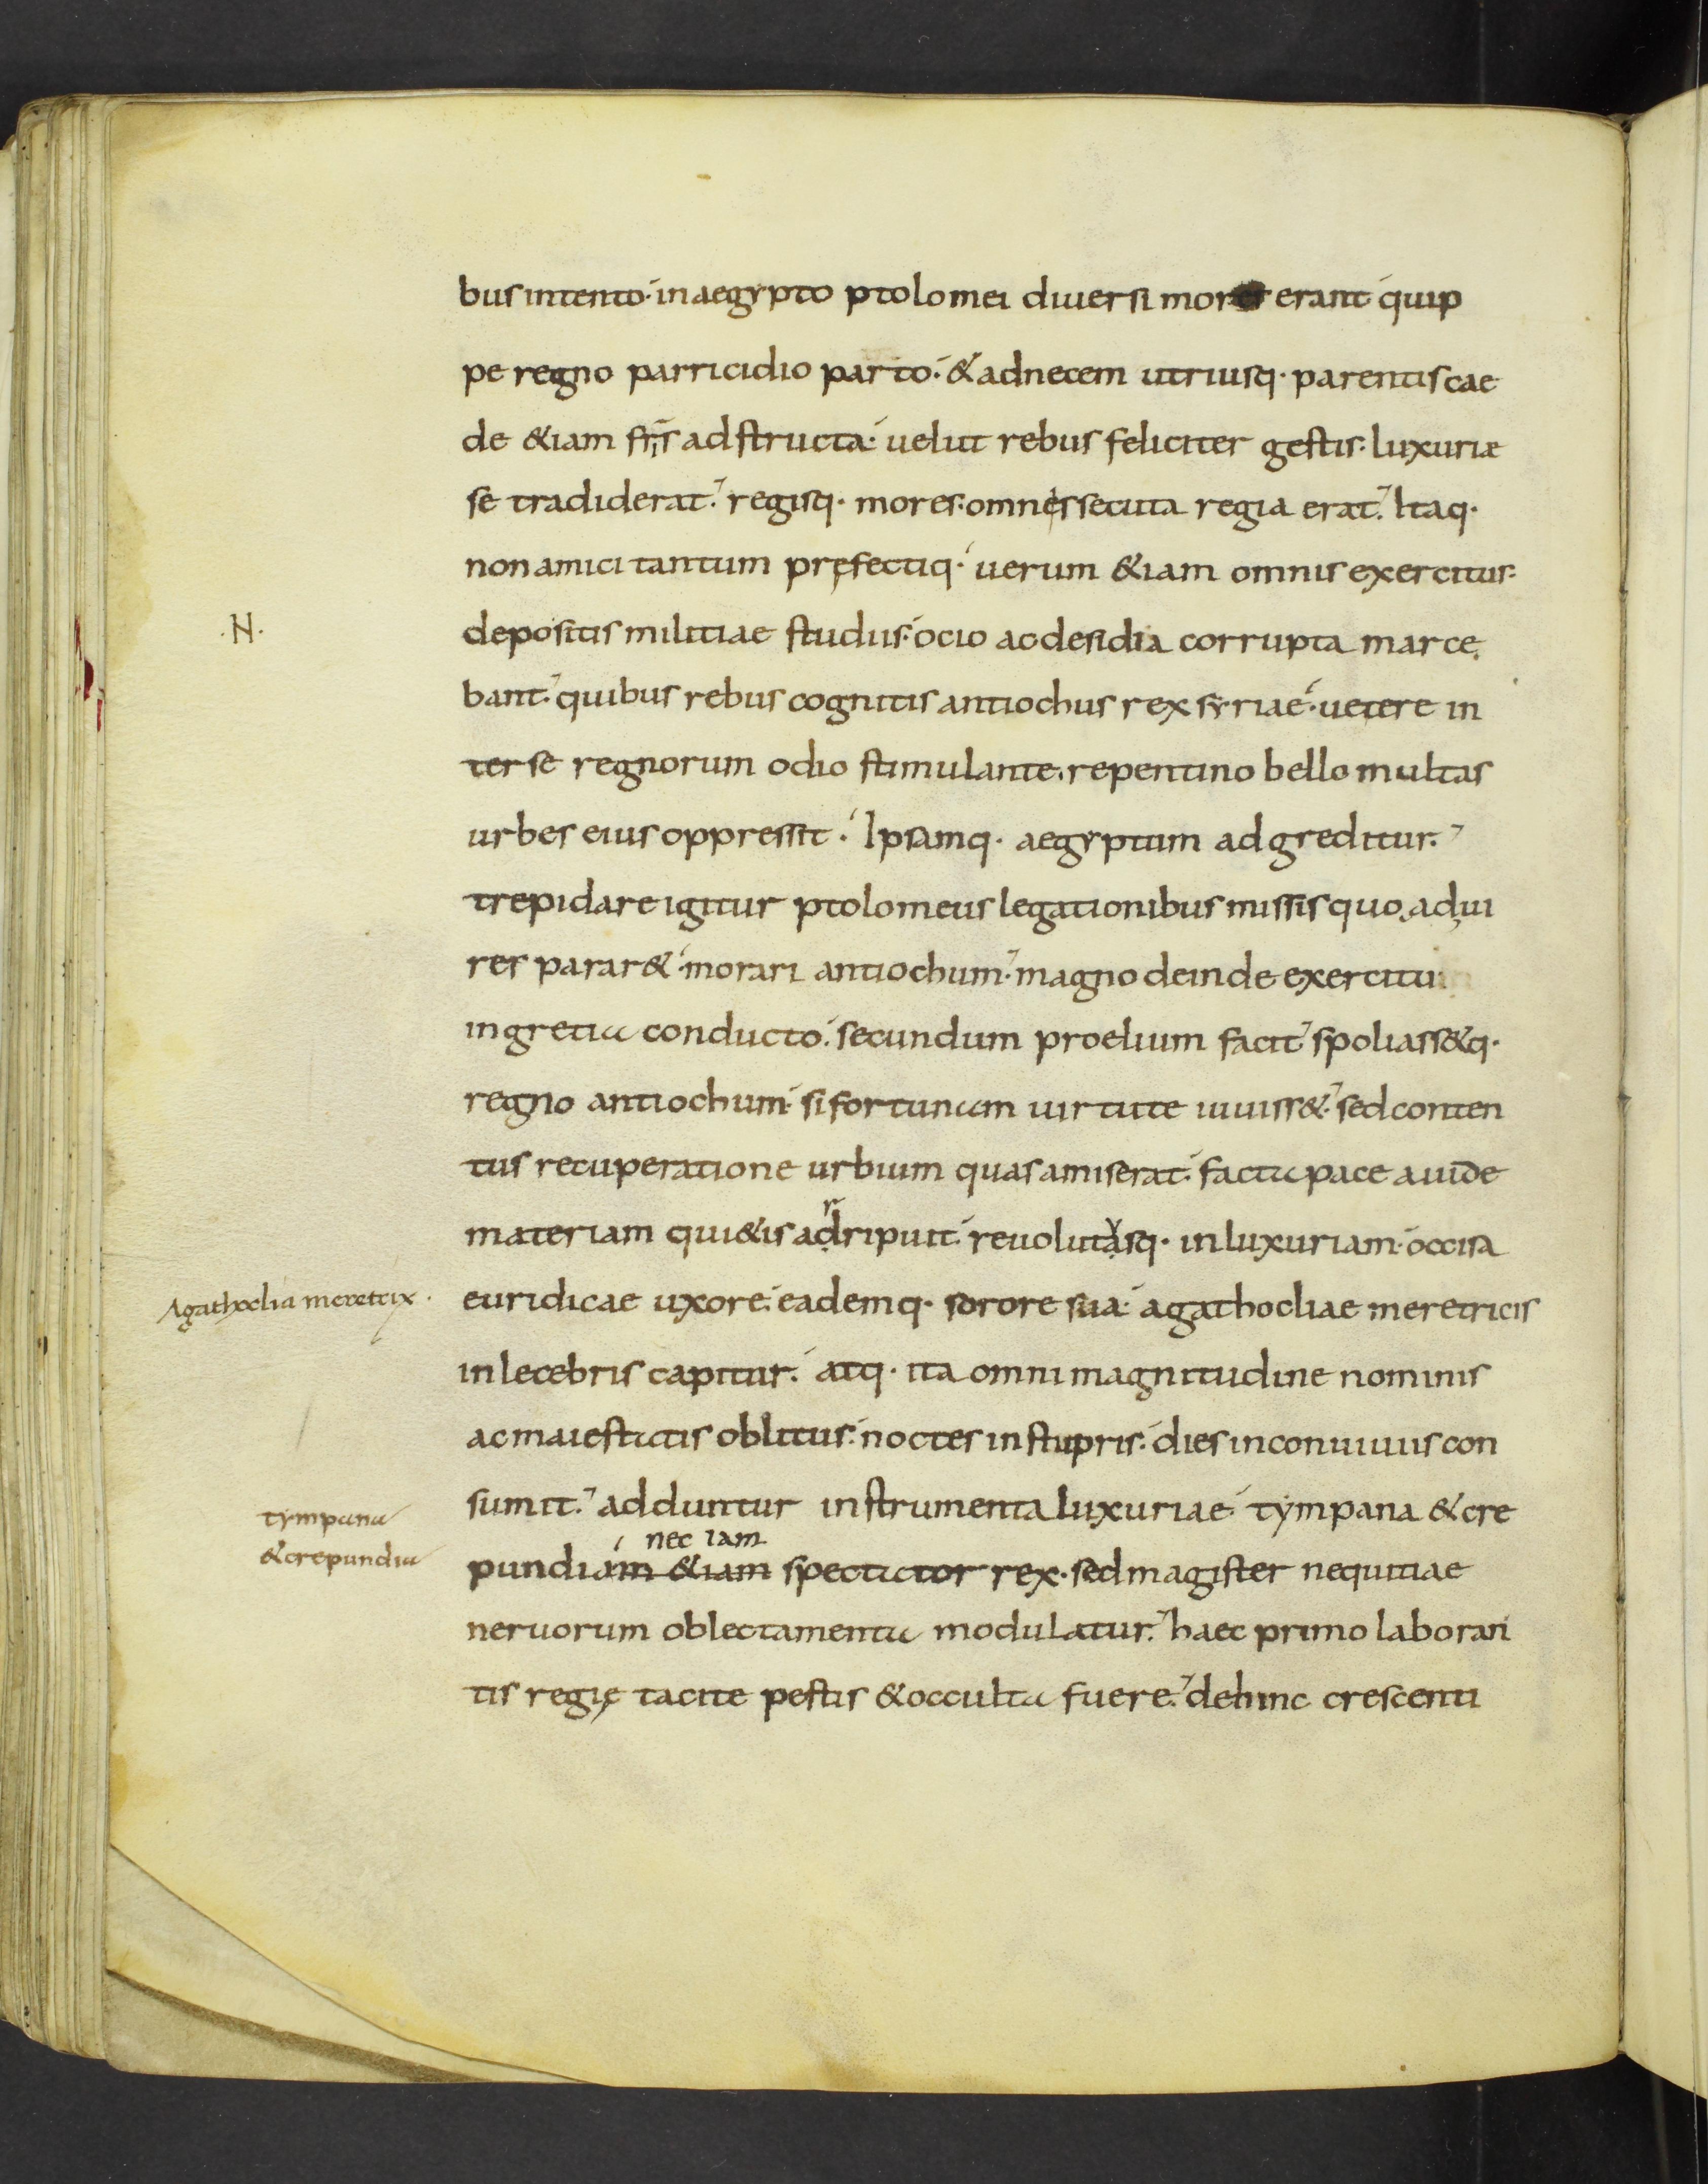 bus intento· in aegypto ptolomei diuersi mores erant· quip
pe regno parricidio parto· & ad necem utriusq· parentis cae
de &iam fr̄is adstructa· uelut rebus feliciter gestis· luxuriæ
se tradiderat· regisq· mores· omnis secuta regia erat· Itaq·
non amici tantum pręfectiq· uerum &iam omnis exercitus·
·N·
depositis militiae studiis· ocio ac desidia corrupta marce
bant· quibus rebus cognitis antiochus rex syriae· uetere in
ter se regnorum odio stimulante, repentino bello multas
urbes eius oppressit· Ipsamq· aegyptum adgreditur·
trepidare igitur ptolomeus legationibus missis quo ad ui
res parar& morari antiochum· magno deinde exercitu
in gretia conducto· secundum proelium facit· spoliass&q·
regno antiochum· si fortunam uirtute iuuiss&· sed conten
tus recuperatione urbium quas amiserat· facta pace auide
materiam qui&is adripuit· reuolutasq· in luxuriam· occisa
Agathoclia meretrix·
euridicae uxore· eademq· sorore sua· agathocliae meretricis
inlecebris capitur· atq· ita omni magnitudine nominis
ac maiestatis oblitus· noctes in stupris· dies in conuiuiis con
sumit· adduntur instrumenta luxuriae· tympana & cre
tympana
& crepundia
nec iam
pundiam &iam spectator rex· sed magister nequitiae
neruorum oblectamenta modulatur· haec primo laboran
tis regię tacite pestis & occulta fuere· dehinc crescenti